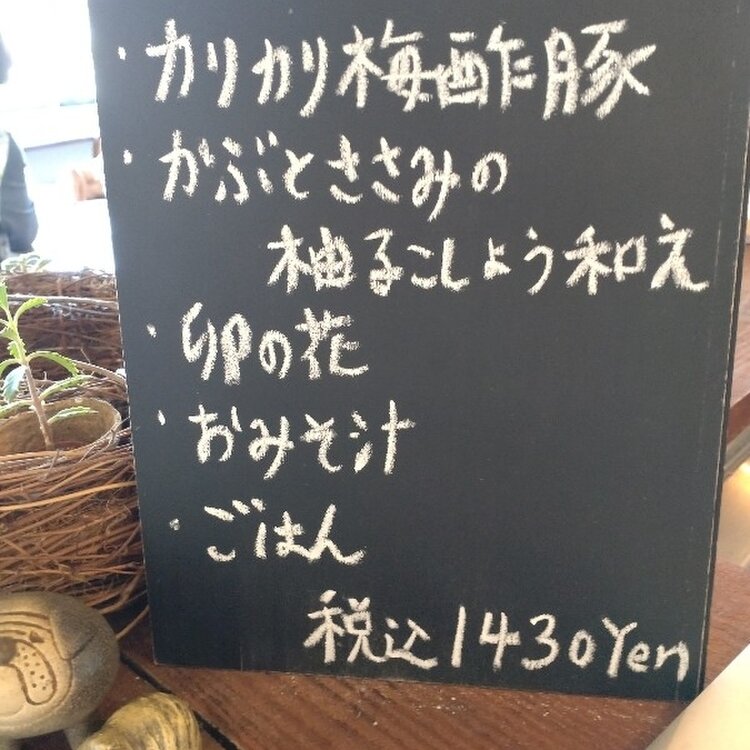 ・カリカリ梅酢豚
・かぶとささみの
柚子こしょう和え
・卯の花
・おみそ汁
・ごはん
税込1430Yen